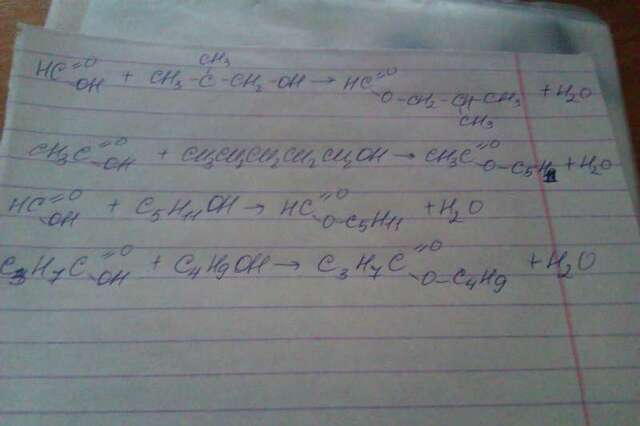 HC=O OH + CH3-C(CH3)-CH2-OH → HC=O O-CH2-CH-CH3 CH3 + H2O
CH3C=O OH + CH3CH2CH2CH2CH2OH → CH3C=O O-C5H11 + H2O
HC=O OH + C5H11OH → HC=O O-C5H11 + H2O
C3H7C=O OH + C4H9OH → C3H7C=O O-C4H9 + H2O